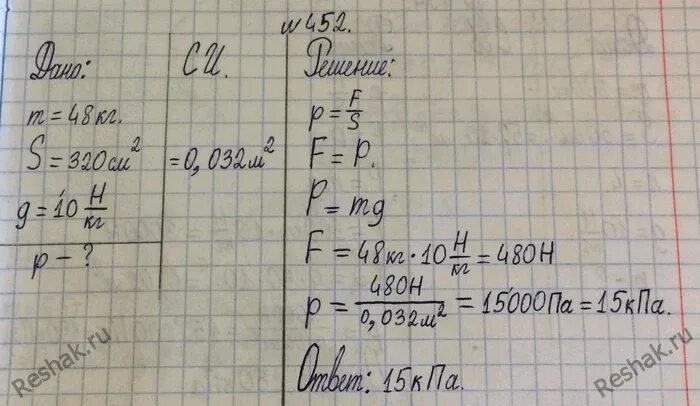 №452.
Дано:
m = 48кг.
S = 320см²
g = 10 Н/кг
p - ?
СИ.
= 0,032м²
Решение:
p = F/S
F = P.
P = mg
F = 48кг · 10 Н/кг = 480Н
p = 480Н/0,032м² = 15000Па = 15кПа.
Ответ: 15кПа.
Reshak.ru
Reshak.ru